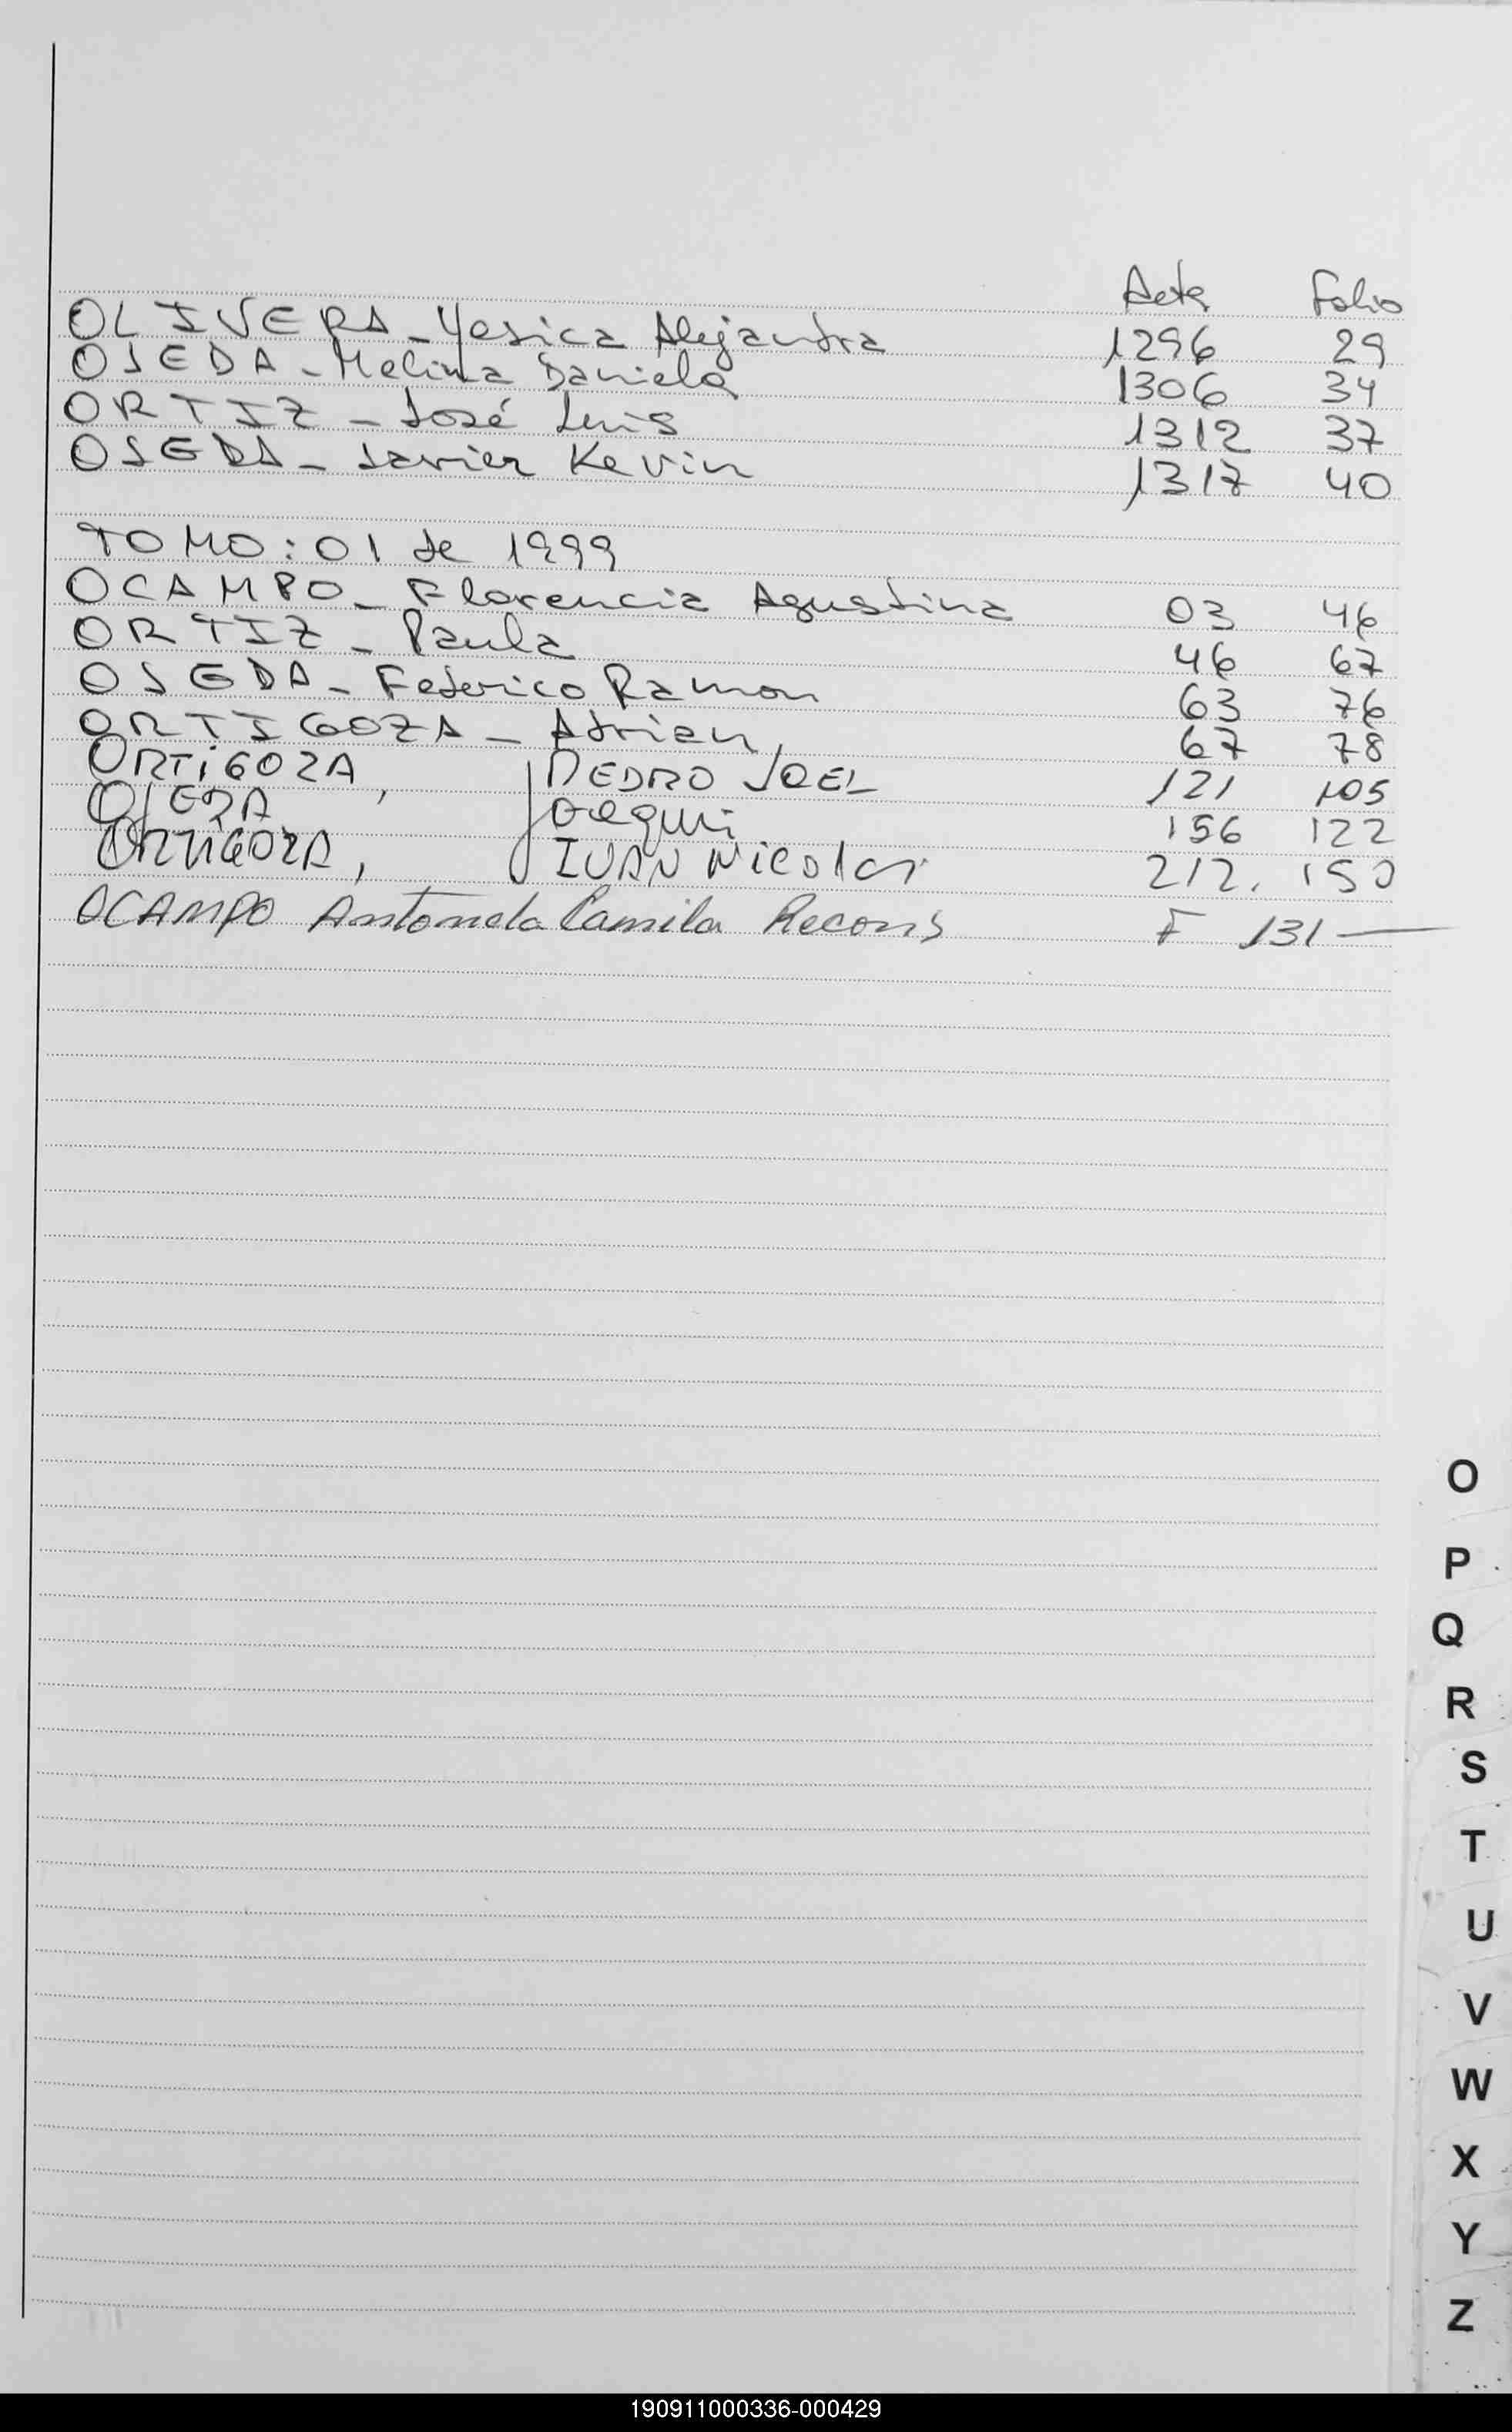 Acta Folio
OLIVERA - Yesica Alejandra 1296 29
OJEDA - Melina Daniela 1306 34
ORTIZ - José Luis 1312 37
OJEDA - Javier Kevin 1317 40
TOMO: 01 de 1999
OCAMPO - Florencia Agustina 03 46
ORTIZ - Paula 46 67
OJEDA - Federico Ramon 63 76
ORTIGOZA - Adrian 67 78
ORTiGOZA, PEDRO JOEL 121 105
OJEDA, Joaquin 156 122
ORTIGOZA, IVAN Nicolas 212. 150
OCAMPO Antonela Camila Recons F 131 —
O
P
Q
R
S
T
U
V
W
X
Y
Z
190911000336-000429